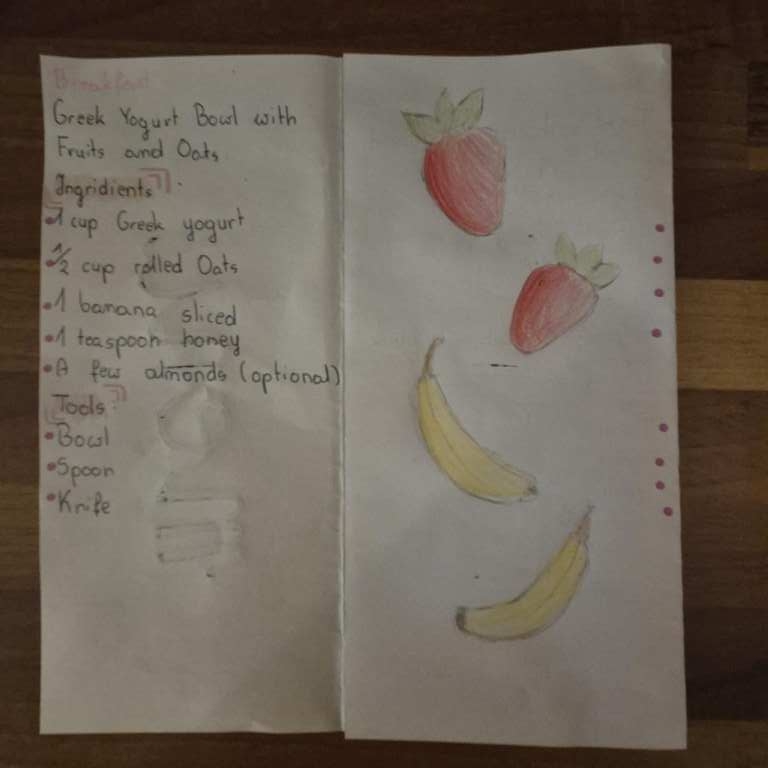 Breakfast
Greek Yogurt Bowl with
Fruits and Oats
Ingridients:
• 1 cup Greek yogurt
• 1/2 cup rolled Oats
• 1 banana sliced
• 1 teaspoon honey
• A few almonds (optional)
Tools:
• Bowl
• Spoon
• Knife